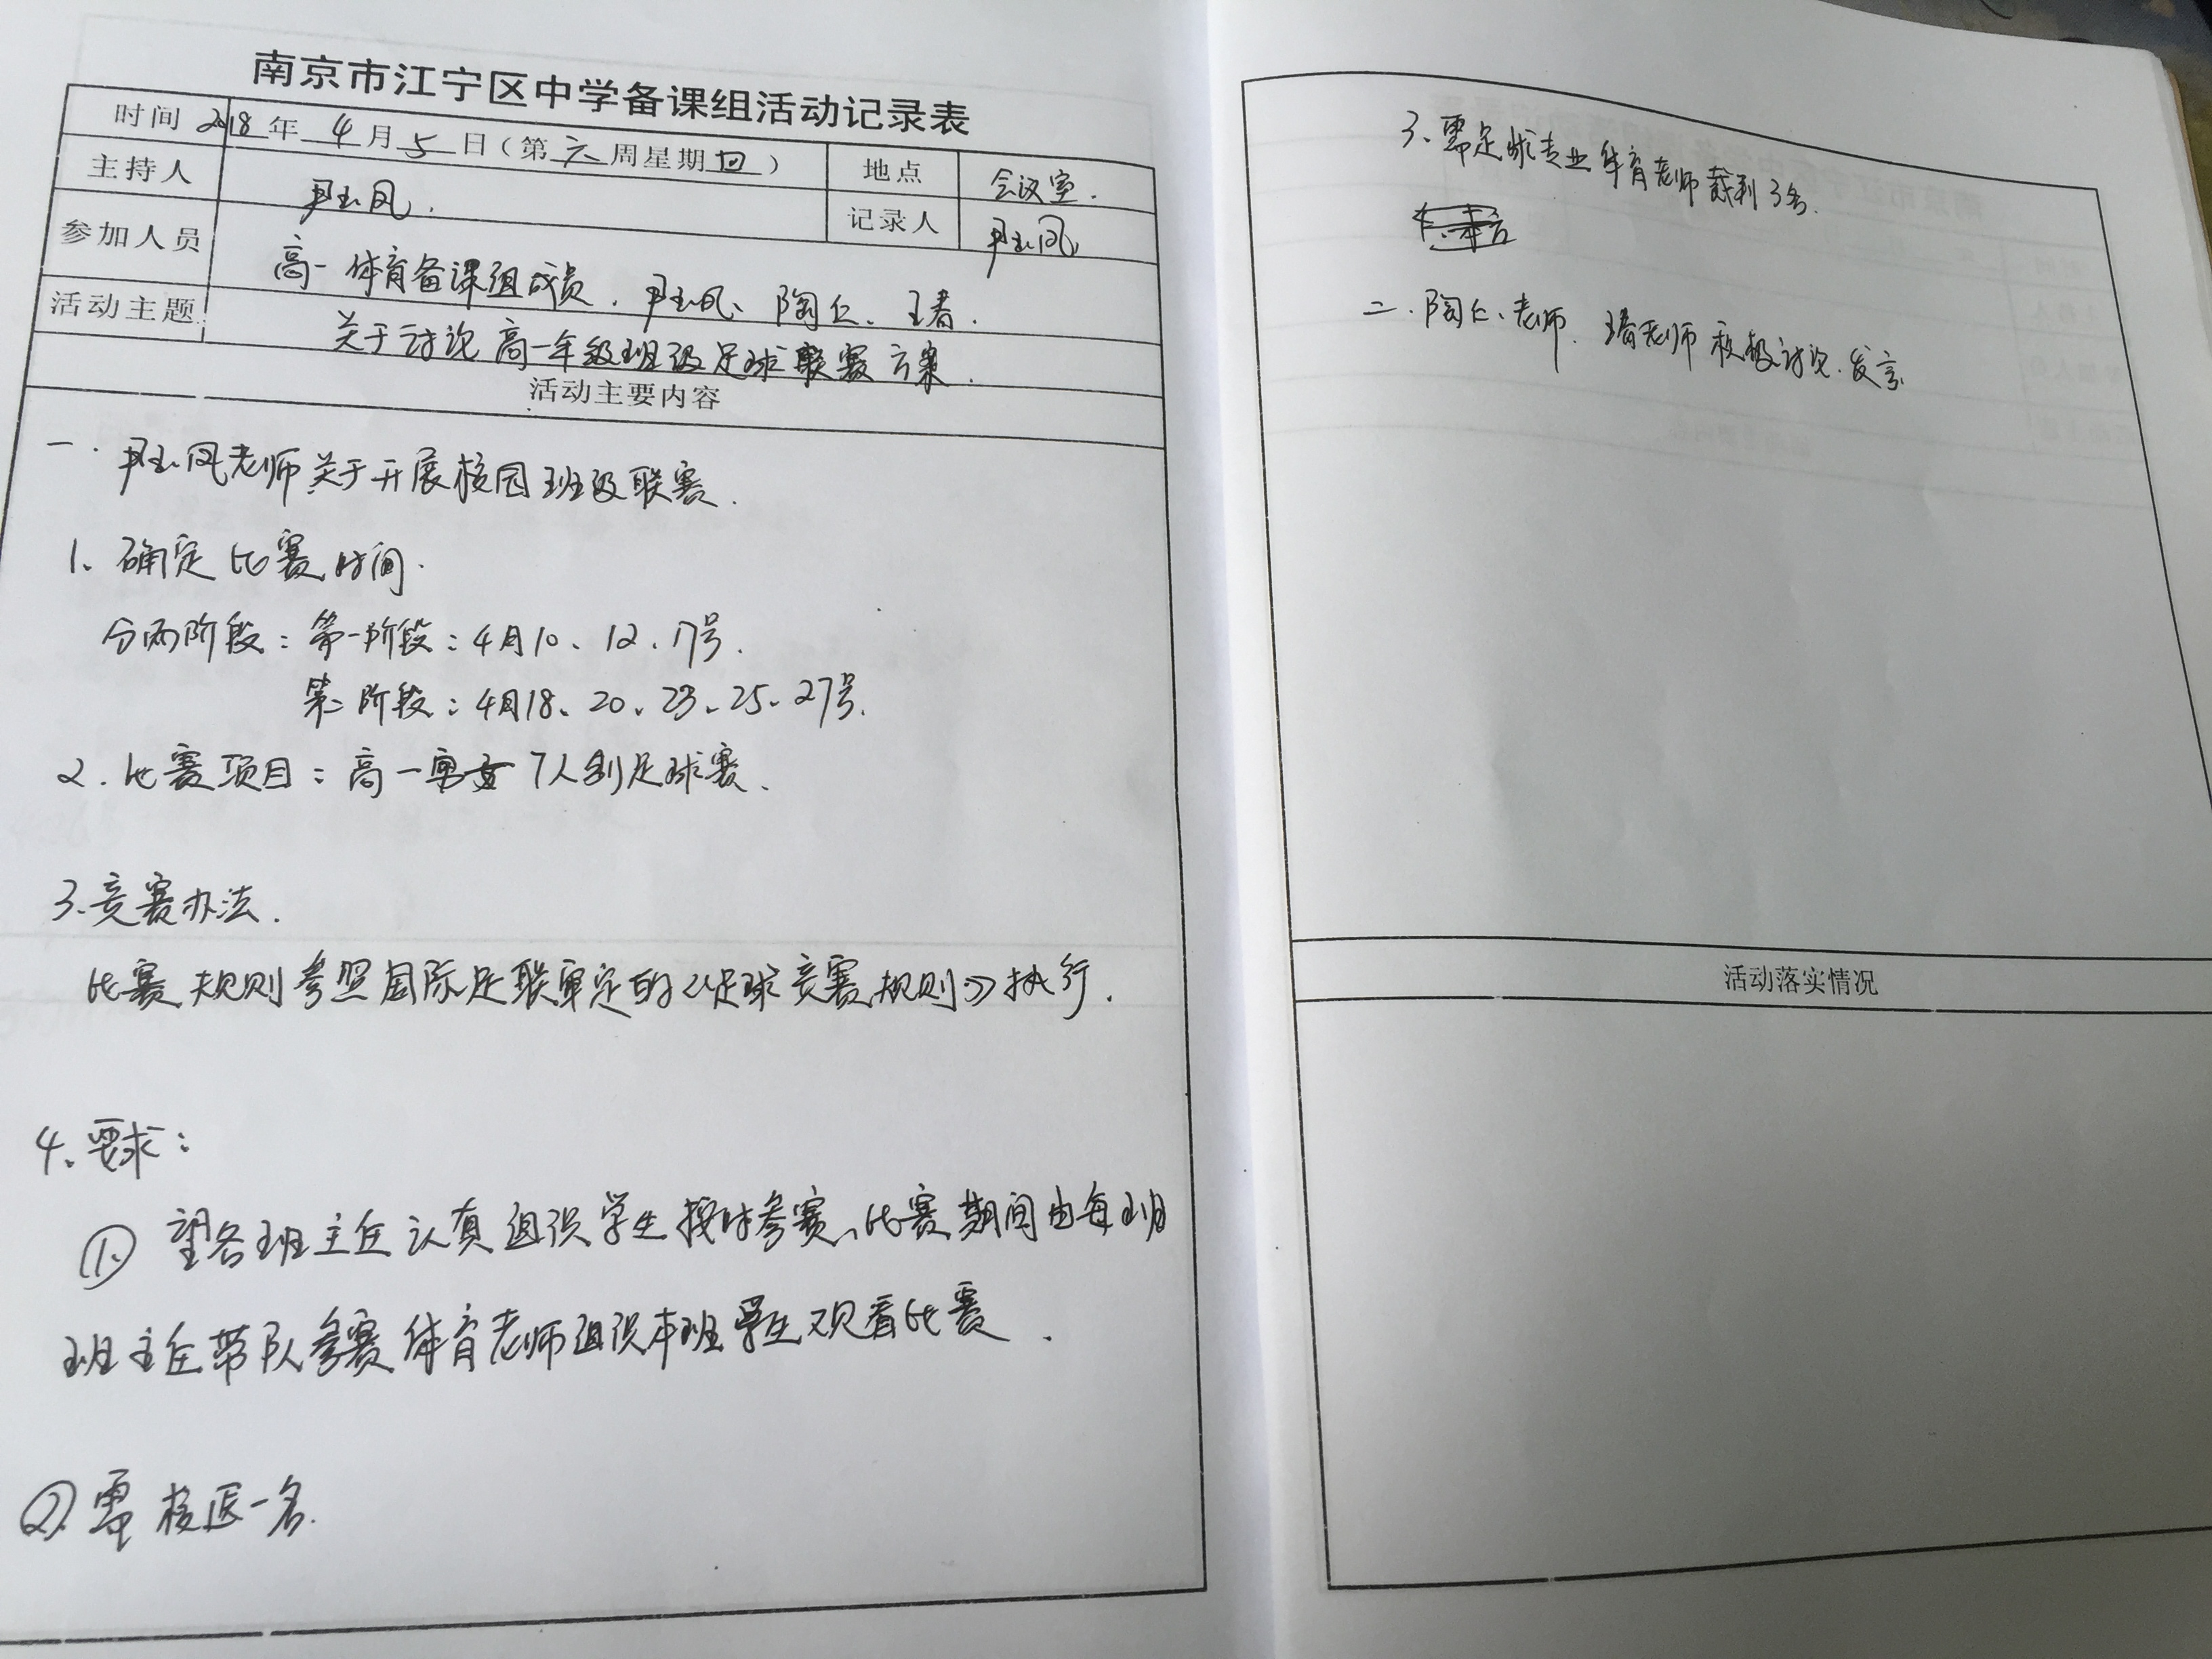 南京市江宁区中学备课组活动记录表
时间 2018年 4月5日（第六周星期四） 地点 会议室.
主持人 尹玉凤. 记录人 尹玉凤
参加人员 高一体育备课组成员. 尹玉凤、陶仁、王春.
活动主题 关于讨论高一年级班级足球联赛方案.
活动主要内容
一. 尹玉凤老师关于开展校园班级联赛.
1、确定比赛时间.
分两阶段：第一阶段：4月10、12、17号.
第二阶段：4月18、20、23、25、27号.
2. 比赛项目：高一男女7人制足球赛.
3、竞赛办法.
比赛规则参照国际足联审定的《足球竞赛规则》执行.
4、要求：
① 望各班主任认真组织学生按时参赛、比赛期间由每班
班主任带队参赛体育老师组织本班学生观看比赛.
② 需校医一名.
3、需足球专业体育老师裁判3名.
二. 陶仁、老师. 王春老师积极讨论.发言
活动落实情况